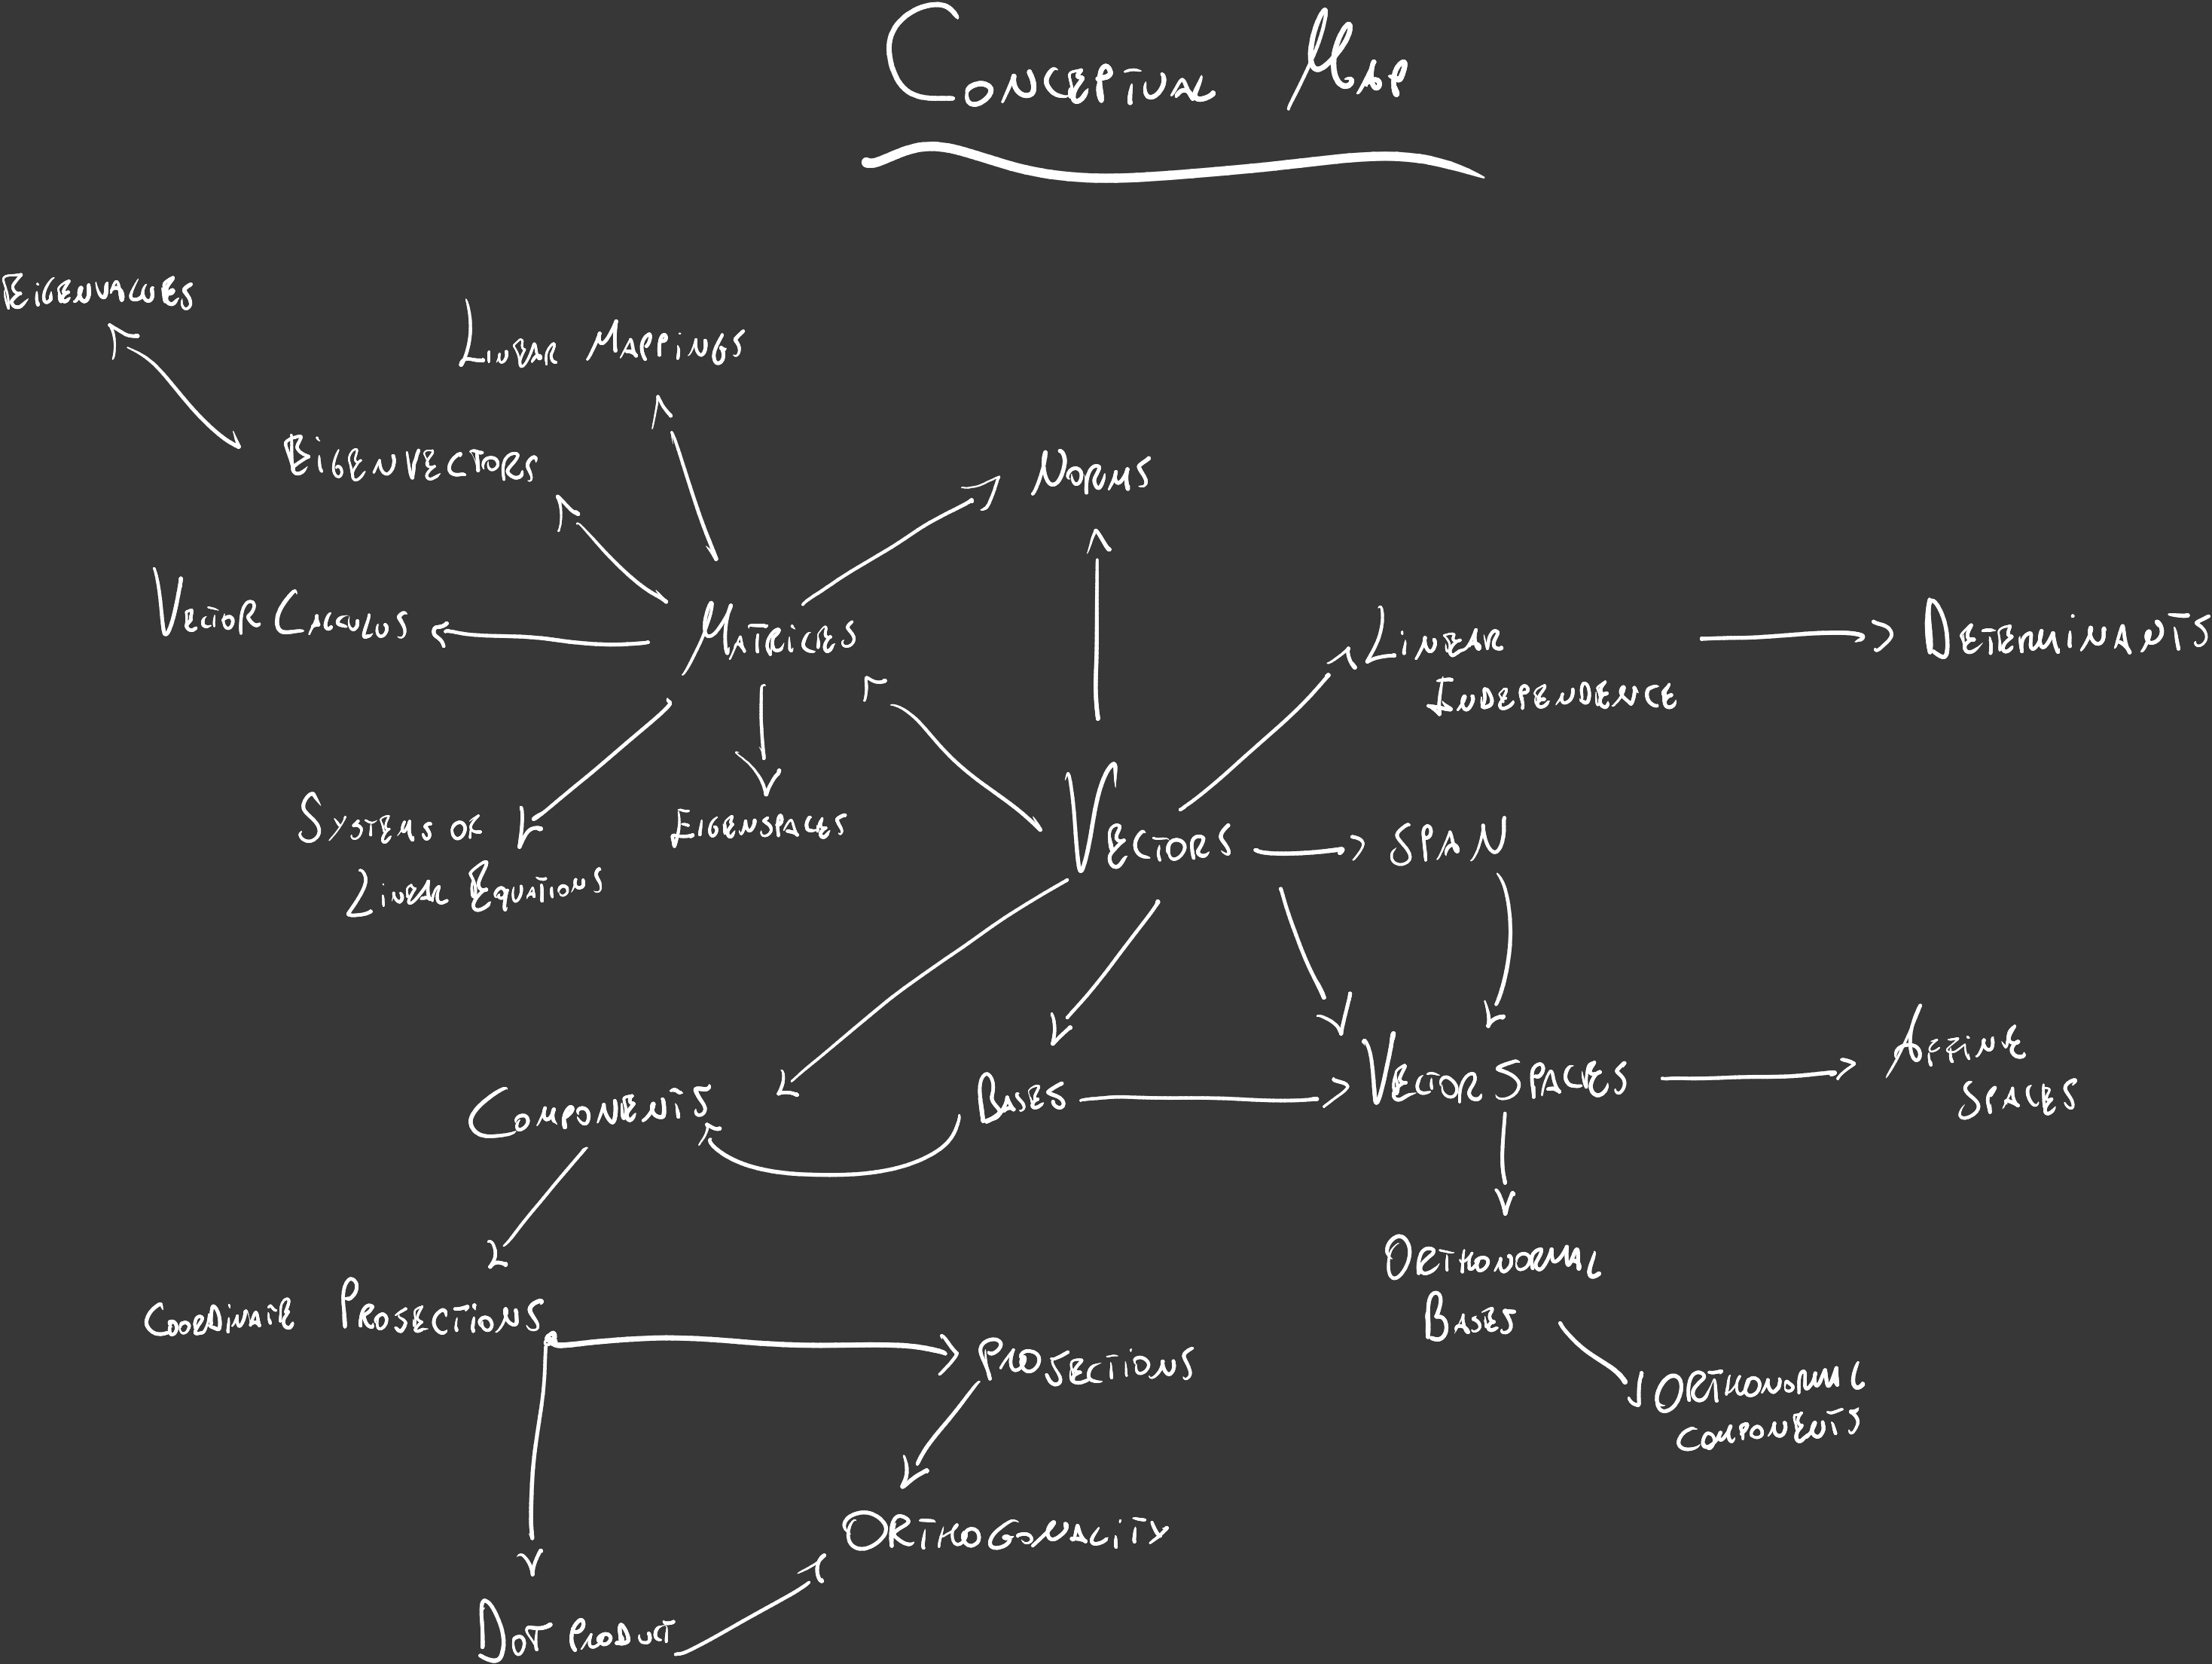 Conceptual Map
Eigenvalues
Linear Mappings
Eigenvectors
Norms
Vector Calculus
Matrices
Linear
Independence
Determinants
Systems of
Linear Equations
Eigenspaces
Vectors
Span
Components
Bases
Vector Spaces
Affine
Spaces
Orthonormal
Bases
Coordinate Projections
Projections
Orthonormal
Components
Orthogonality
Dot Product